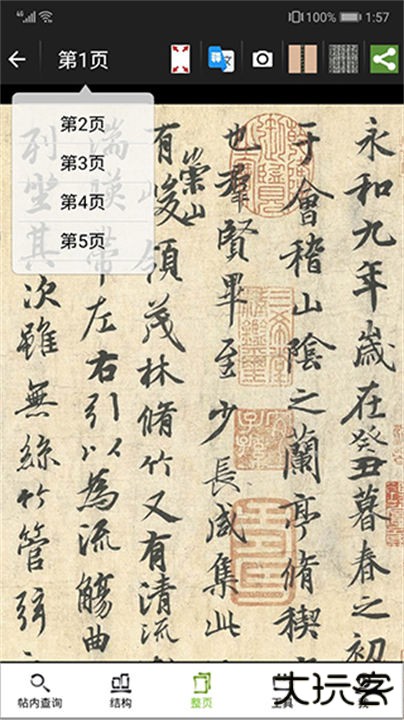 100% 1:57
第1页
第2页
第3页
第4页
第5页
永和九年歲在癸丑暮春之初
于會稽山陰之蘭亭脩稧
也羣賢畢至少長咸集此
有崇山峻領茂林脩竹又有清流
湍暎帶左右引以為流觴曲
列坐其次雖無絲竹管弦
帖内查询
结构
整页
工具
大玩客